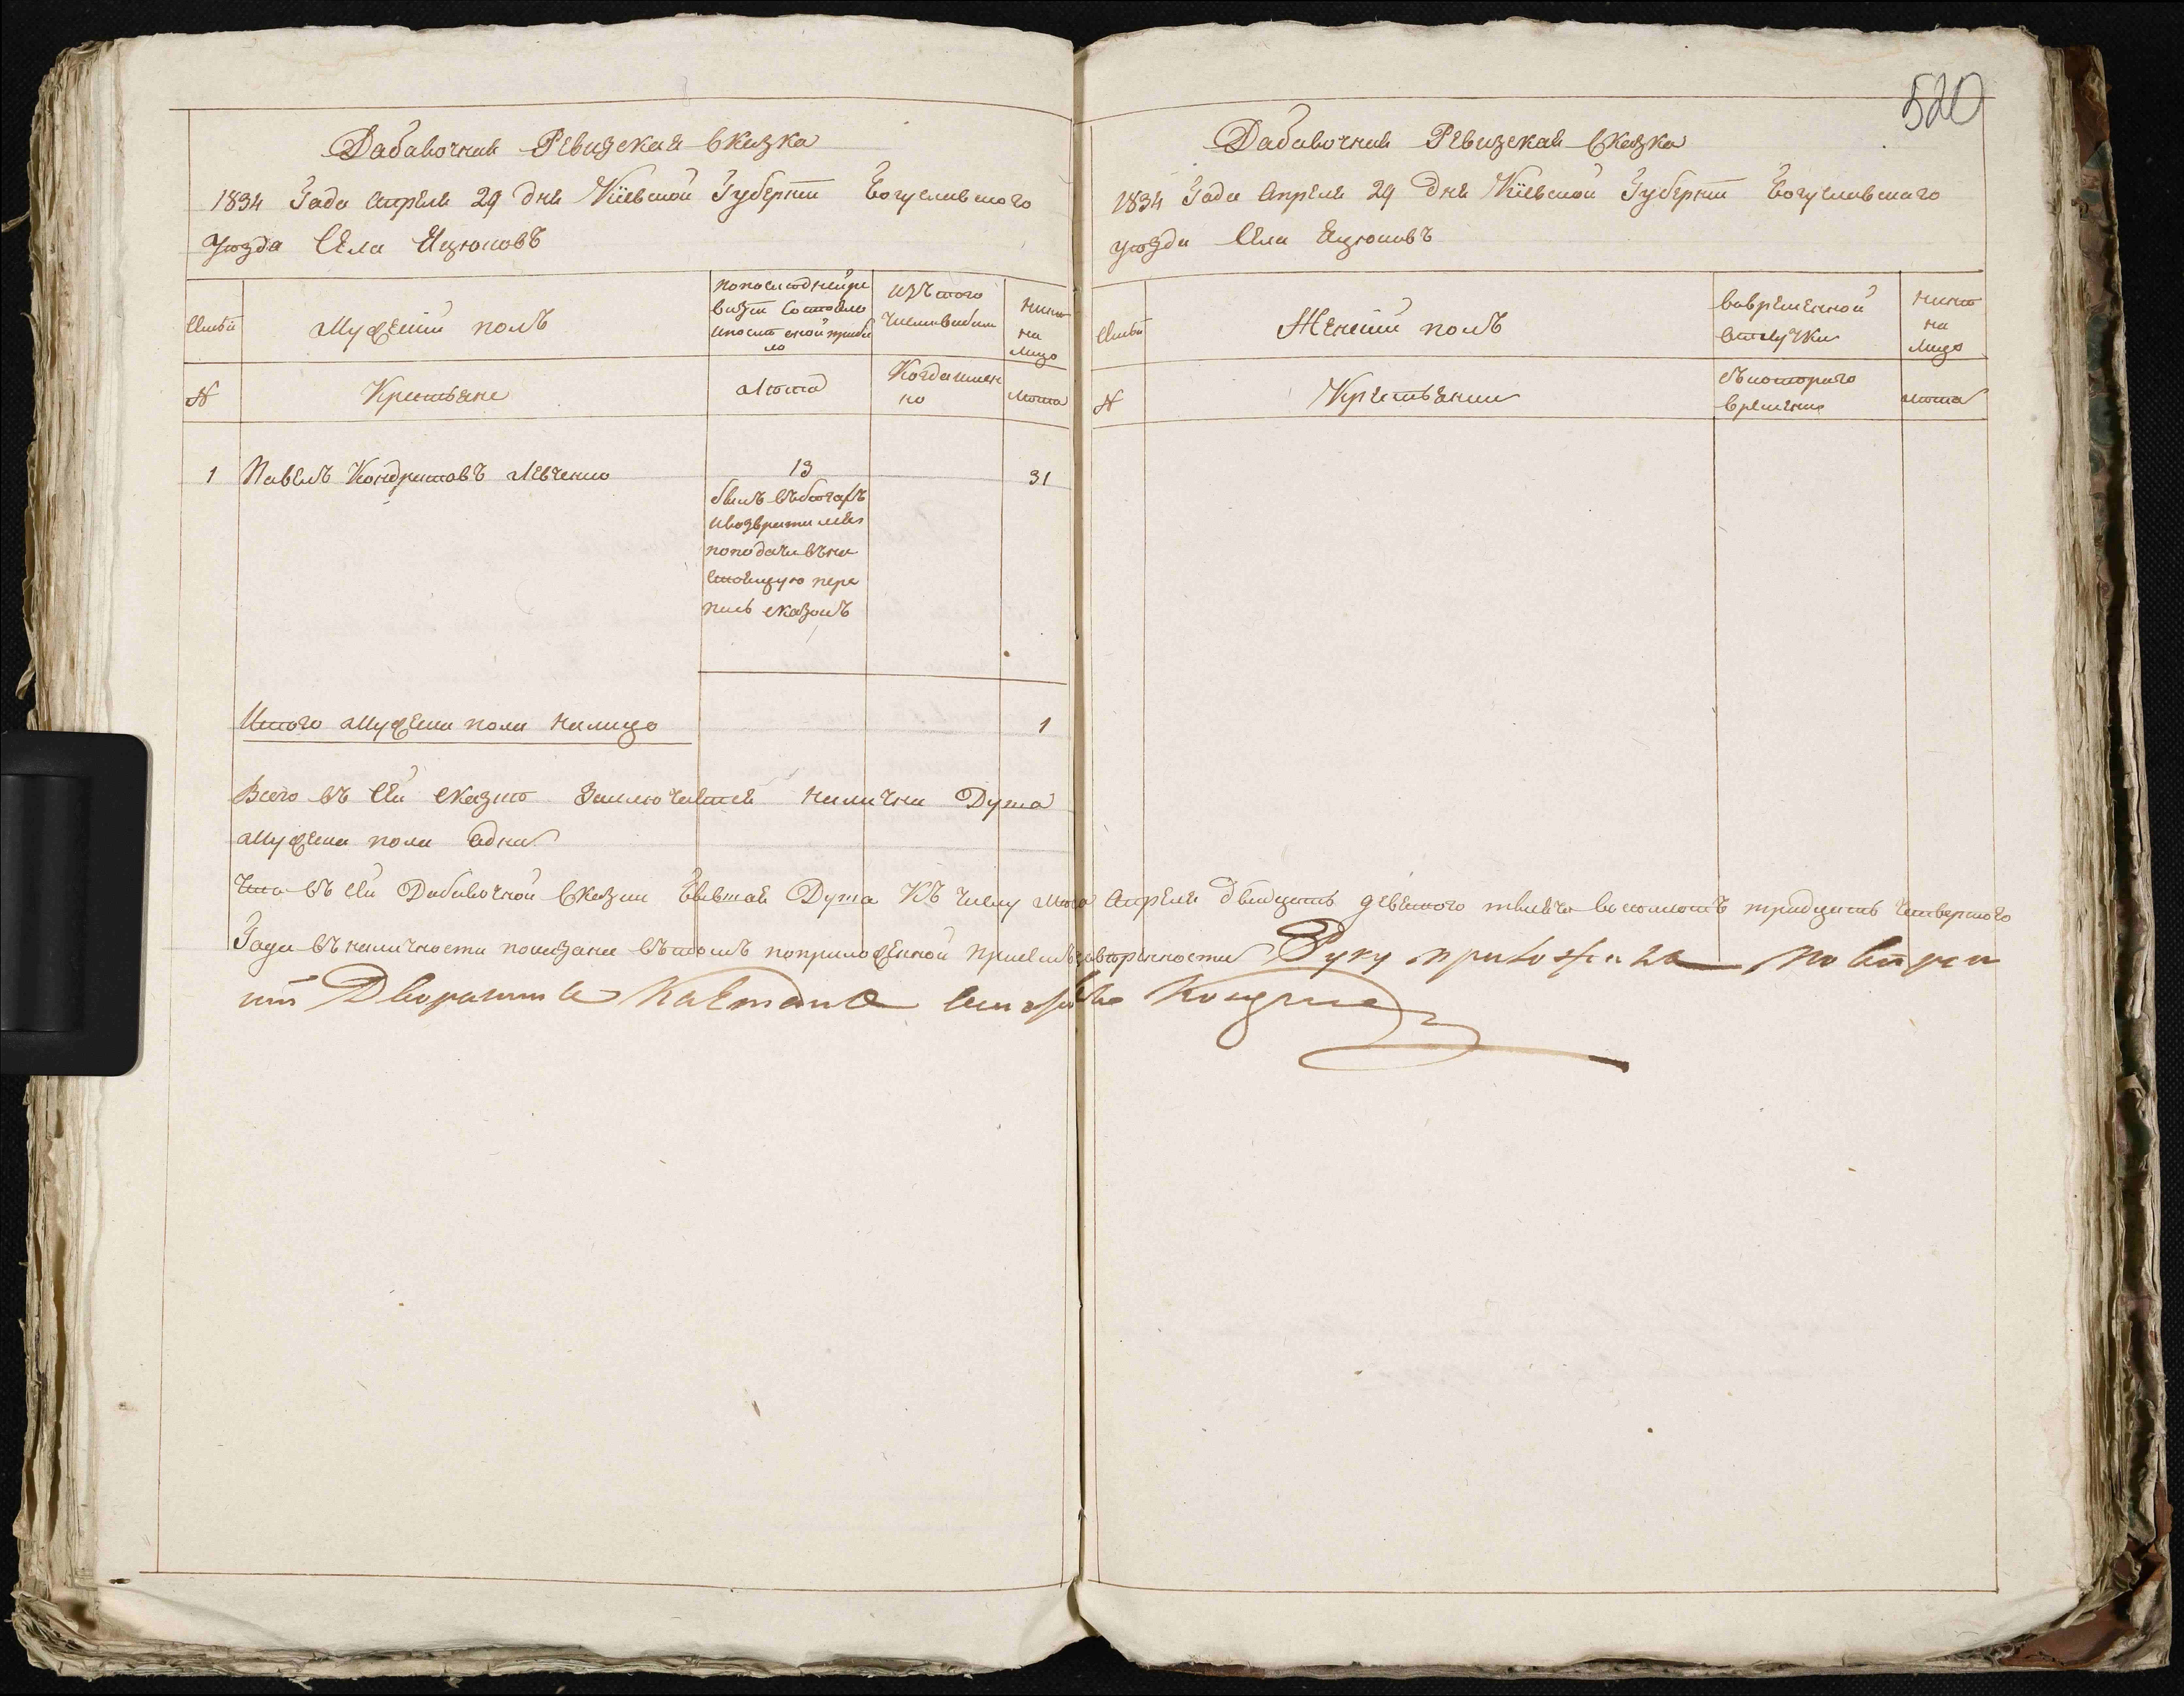 520
Дабавочная Ревизская Сказка
1834 Года Апреля 29 дня Кіевской Губерніи Богуславского
Уѣзда Села Яцюковъ
Семьи
Мужескій полъ
попоследнейре
визіи Состояло
ипослѣ оной прибы
ло
Изътого
Числавыбыло
Нынѣ
на
лицо
№
Крестьяне
Лѣта
Когдаимян
но
Лѣта
1
Павелъ Кондратовъ Левченко
13
31
былъ въбегахъ
ивозвратился
поподачивъна
стоящую пере
пись сказокъ
Итого мужеска пола налицо
1
Всего въ Сей сказкѣ Заключается Налична Душа
мужеска пола адна
Дабавочная Ревизская Сказка
1834 Года Апреля 29 Дня Кіевской Губерніи Богуславскаго
уѣзда Села Яцюковъ
Семьи
Женскій полъ
вовременной
отлучки
Нынѣ
на
Лицо
№
Крестьянки
съкотораго
времени
лѣта
Что въ Сей Дабавочной Сказки Явшая Душа Къ числу Апреля двадцать девятого тысяча восемьсотъ тридцать Четвертого
Года въналичности показана вътомъ поприложенной присемъ доверенности Руку приложилъ
Дворянинъ